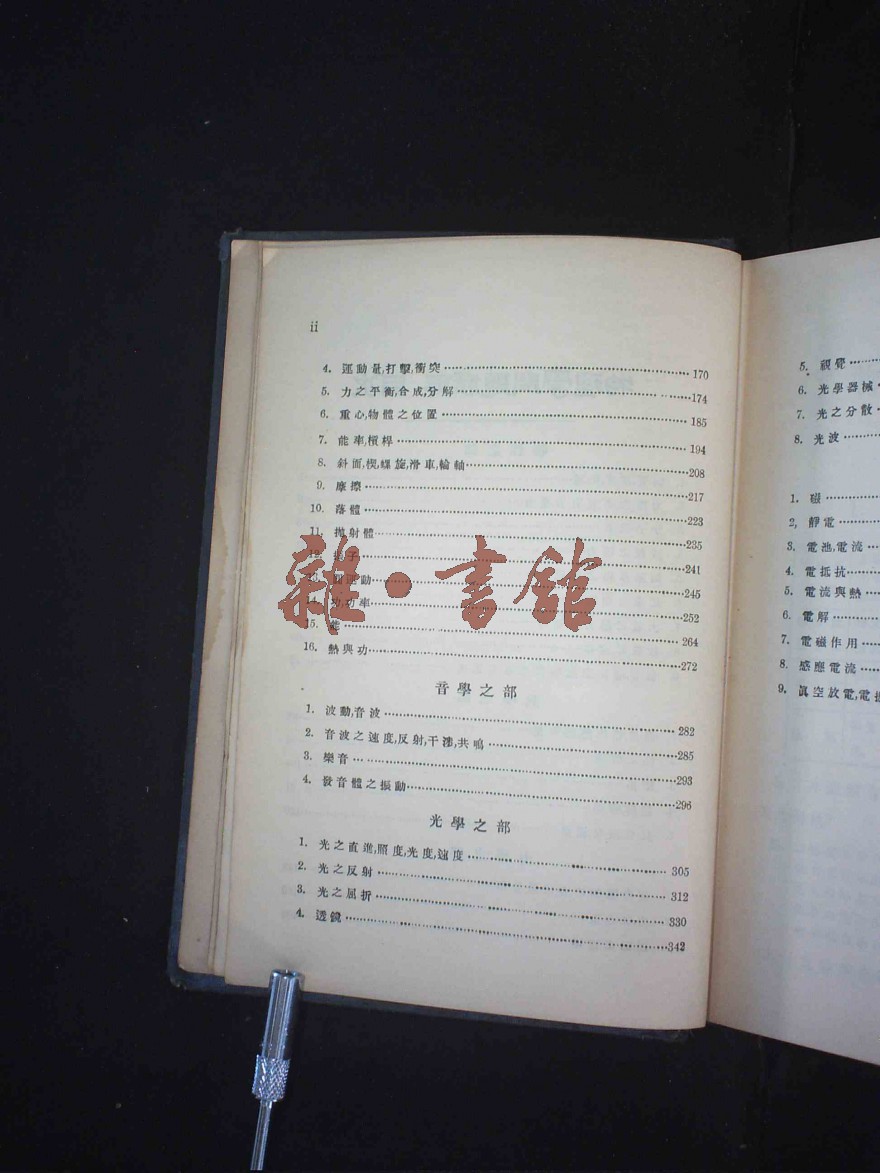 ii
4. 運動量,打擊,衝突 170
5. 力之平衡,合成,分解 174
6. 重心,物體之位置 185
7. 能率,槓桿 194
8. 斜面,楔,螺旋,滑車,輪軸 208
9. 摩擦 217
10. 落體 223
11. 拋射體 235
12. 241
13. 運動 245
14. 功,功率 252
15. 能 264
16. 熱與功 272
音學之部
1. 波動,音波 282
2. 音波之速度,反射,干涉,共鳴 285
3. 樂音 293
4. 發音體之振動 296
光學之部
1. 光之直進,照度,光度,速度 305
2. 光之反射 312
3. 光之屈折 330
4. 透鏡 342
雜·書館
5. 視覺
6. 光學器械
7. 光之分散
8. 光波
1. 磁
2. 靜電
3. 電池,電流
4. 電抵抗
5. 電流與熱
6. 電解
7. 電磁作用
8. 感應電流
9. 眞空放電,電